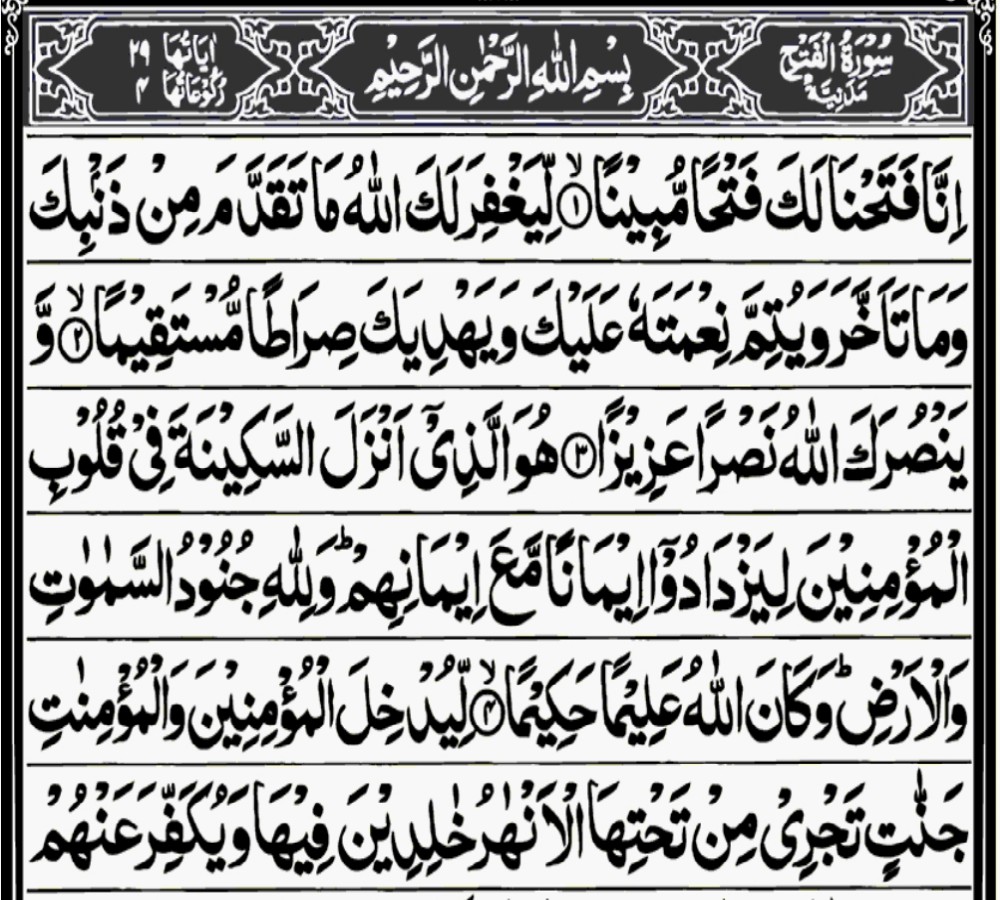 سُوْرَةُ الْفَتْحِ مَدَنِيَّةٌ
بِسْمِ اللّٰهِ الرَّحْمٰنِ الرَّحِيْمِ
اٰيَاتُهَا ٢٩
رُكُوْعَاتُهَا ٤
اِنَّا فَتَحْنَا لَكَ فَتْحًا مُّبِيْنًا ۙ‏﴿١﴾ لِّيَغْفِرَ لَكَ اللّٰهُ مَا تَقَدَّمَ مِنْ ذَنْۢبِكَ
وَمَا تَاَخَّرَ وَيُتِمَّ نِعْمَتَهٗ عَلَيْكَ وَيَهْدِيَكَ صِرَاطًا مُّسْتَقِيْمًا ۙ‏﴿٢﴾ وَّ
يَنْصُرَكَ اللّٰهُ نَصْرًا عَزِيْزًا ﴿٣﴾ هُوَ الَّذِيْۤ اَنْزَلَ السَّكِيْنَةَ فِيْ قُلُوْبِ
الْمُؤْمِنِيْنَ لِيَزْدَادُوْۤا اِيْمَانًا مَّعَ اِيْمَانِهِمْ ؕ وَلِلّٰهِ جُنُوْدُ السَّمٰوٰتِ
وَالْاَرْضِ ؕ وَكَانَ اللّٰهُ عَلِيْمًا حَكِيْمًا ۙ‏﴿٤﴾ لِّيُدْخِلَ الْمُؤْمِنِيْنَ وَالْمُؤْمِنٰتِ
جَنّٰتٍ تَجْرِيْ مِنْ تَحْتِهَا الْاَنْهٰرُ خٰلِدِيْنَ فِيْهَا وَيُكَفِّرَ عَنْهُمْ